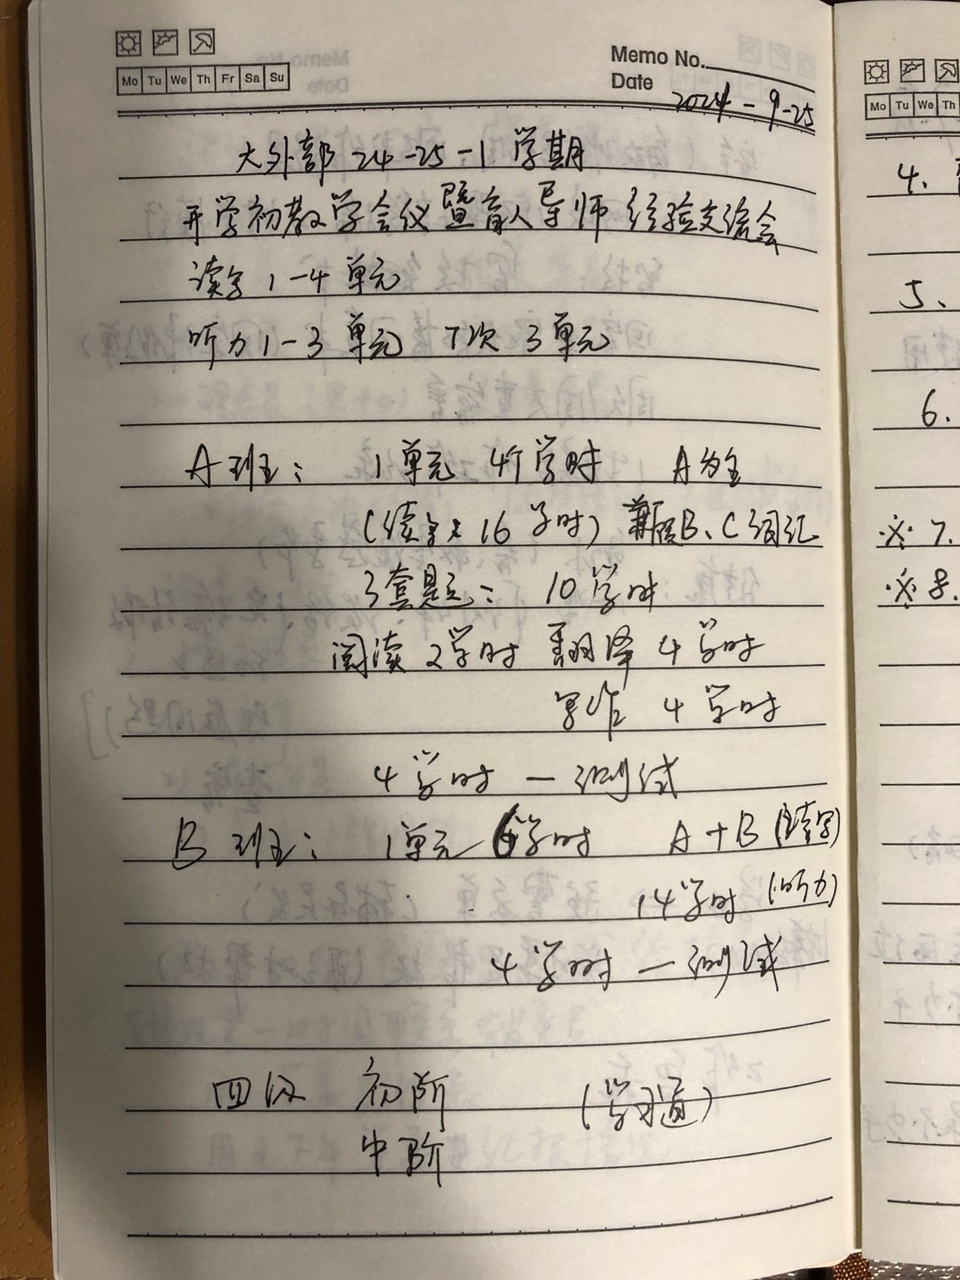 Mo Tu We Th Fr Sa Su
Memo No.
Date 2024-9-25
大外部 24-25-1 学期
开学初教学会议暨育人导师经验交流会
读写 1-4 单元
听力 1-3 单元 7次 3单元
A班: 1单元 4个学时 A为主
(读写 16学时) B、C词汇
3套题: 10学时
阅读 2学时 翻译 4学时
写作 4学时
4学时 — 测试
B班: 1单元 6学时 A+B (读写)
14学时 (听力)
4学时 — 测试
四级 初阶 (学习通)
中阶
Mo Tu We Th
4.
5.
使用
6.
※7.
※8.